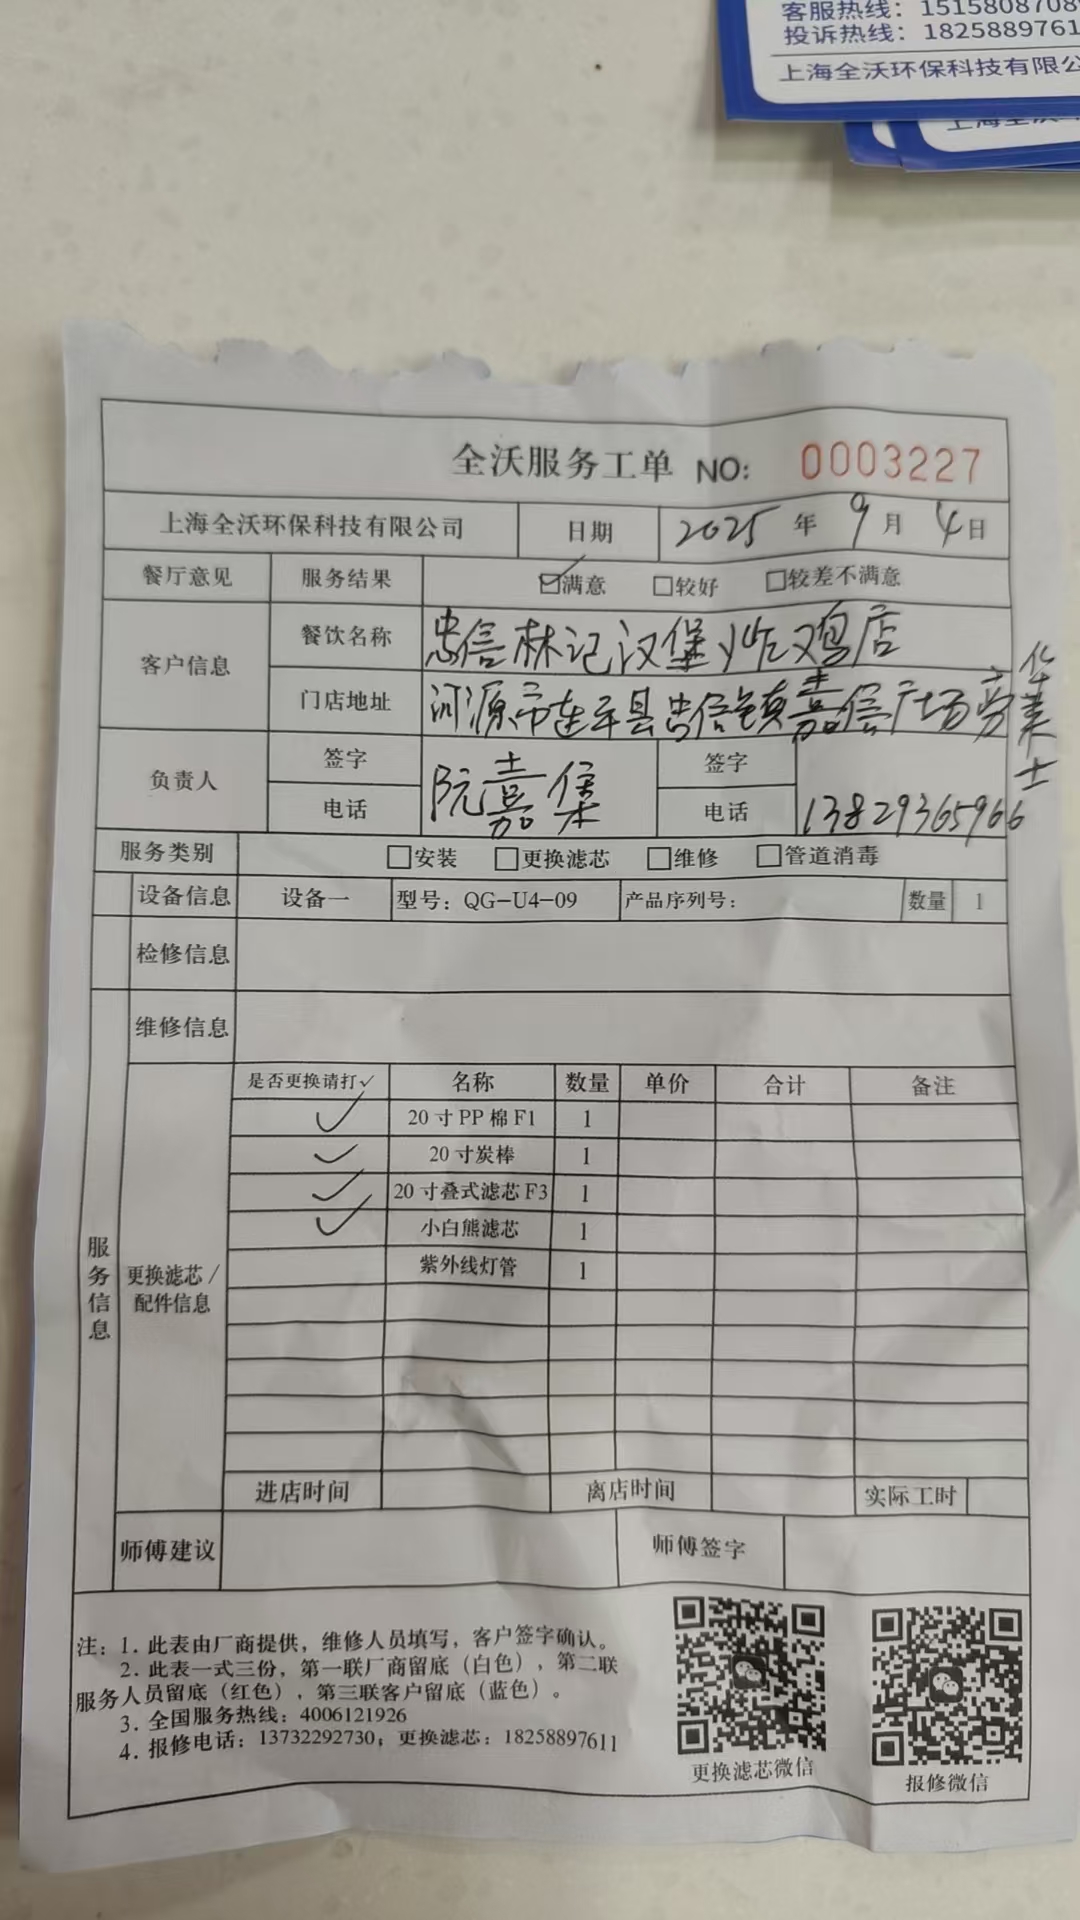 客服热线：1515808708
投诉热线：1825889761
上海全沃环保科技有限公
上海全沃环
全沃服务工单 NO: 0003227
上海全沃环保科技有限公司 日期 2025 年 9 月 4 日
餐厅意见 服务结果 ☑满意 □较好 □较差不满意
客户信息 餐饮名称 忠信林记汉堡炸鸡店
门店地址 河源市连平县忠信镇嘉信广场旁华美士
负责人 签字 阮嘉集 签字
电话 电话 13829365966
服务类别 □安装 □更换滤芯 □维修 □管道消毒
设备信息 设备一 型号：QG-U4-09 产品序列号： 数量 1
检修信息
维修信息
服务信息
更换滤芯／配件信息
是否更换请打✓ 名称 数量 单价 合计 备注
✓ 20寸PP棉F1 1
✓ 20寸炭棒 1
✓ 20寸叠式滤芯F3 1
✓ 小白熊滤芯 1
紫外线灯管 1
进店时间 离店时间 实际工时
师傅建议 师傅签字
注：1. 此表由厂商提供，维修人员填写，客户签字确认。
2. 此表一式三份，第一联厂商留底（白色），第二联
服务人员留底（红色），第三联客户留底（蓝色）。
3. 全国服务热线：4006121926
4. 报修电话：13732292730；更换滤芯：18258897611
更换滤芯微信 报修微信